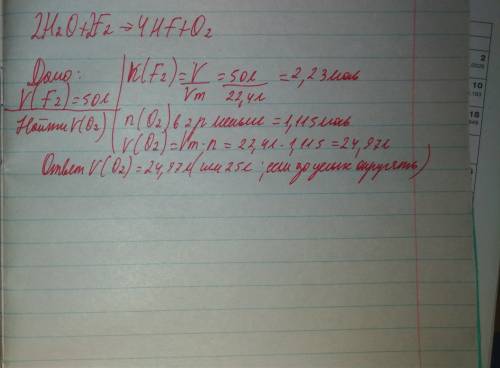 2H₂O+2F₂ → 4HF+O₂
Дано:
V(F₂)=50л
Найти V(O₂)
n(F₂)=V/Vm=50л/22,4л=2,23моль
n(O₂) в 2 р меньше=1,115моль
V(O₂)=Vm·n=22,4л·1,115=24,97л
Ответ V(O₂)=24,97л(или 25л если до целых округлять)
2
10
18